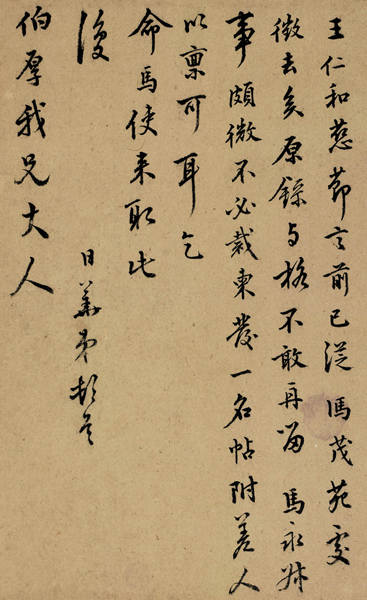 王仁和慈節言前已從馮茂苑處
徵去矣原錄与格不敢再留馬永
事頗微不必裁柬發一名帖附差人
以稟可耳乞
命馬使来取此
復
日華弟頓首
伯厚我兄大人